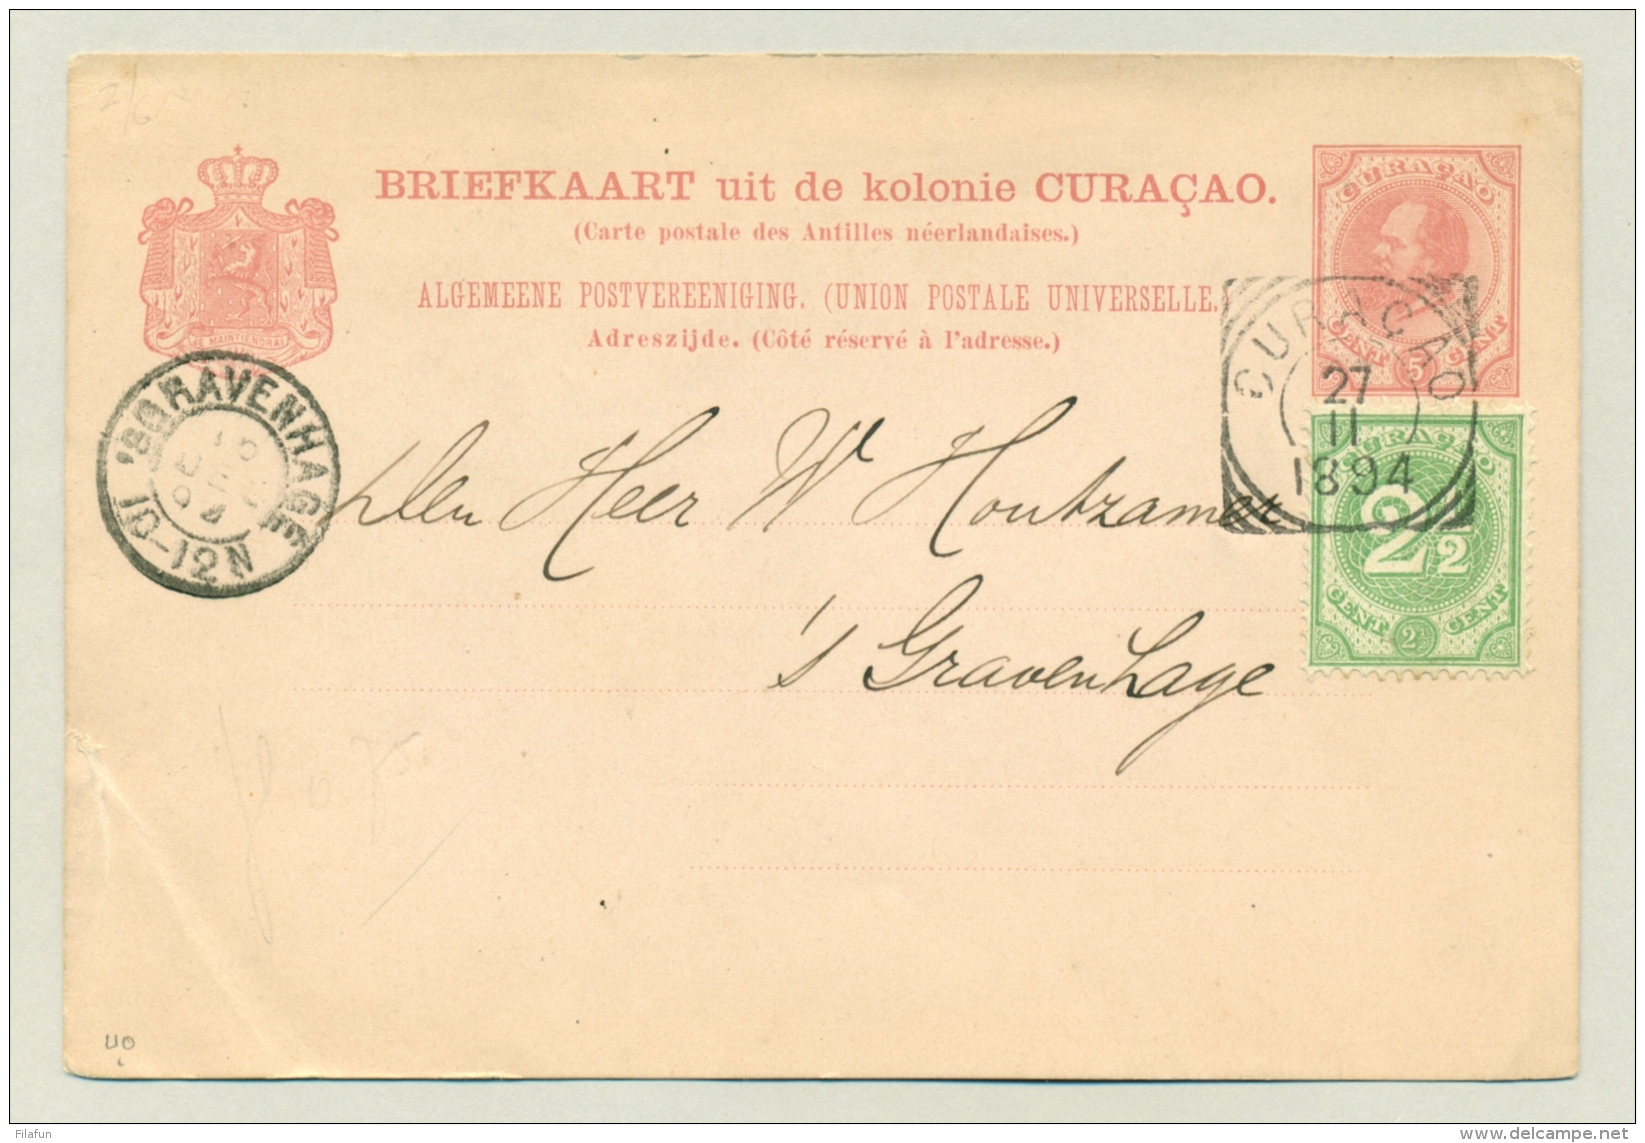 BRIEFKAART uit de kolonie CURAÇAO.
(Carte postale des Antilles néerlandaises.)
ALGEMEENE POSTVEREENIGING. (UNION POSTALE UNIVERSELLE.)
Adreszijde. (Côté réservé à l'adresse.)
JE MAINTIENDRAI
CURAÇAO
CENT 5 CENT
CURAÇAO
27
11
1894
'SGRAVENHAGE
10-12N
CURAÇAO
2 1/2
CENT 2½ CENT
Den Heer W Houtzamer
's Gravenhage
fl. 0.75
UO
Filafun
www.delcampe.net